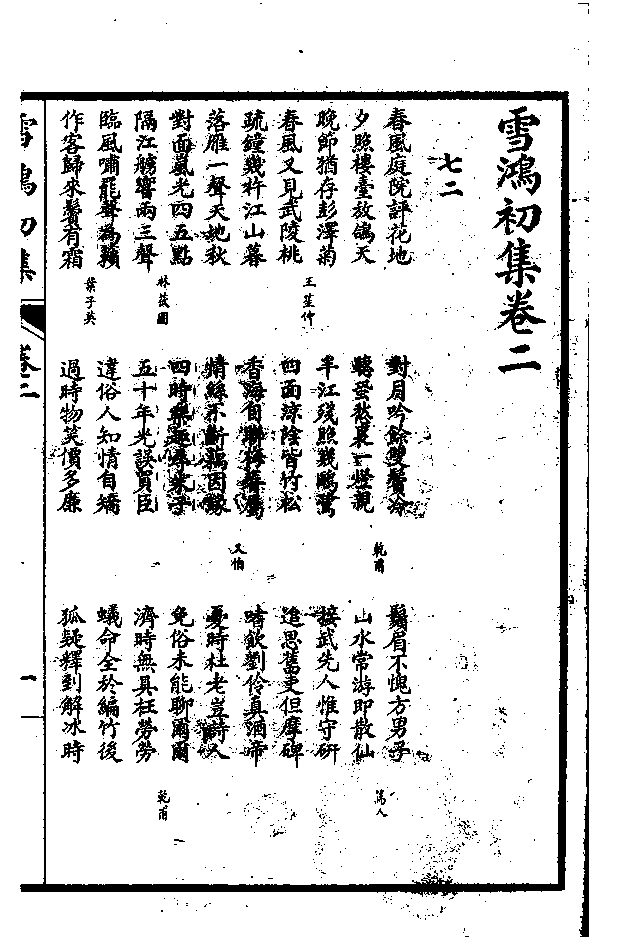 雪鴻初集卷二
七二
春風庭院評花地
夕照樓臺放鴿天
晚節猶存彭澤菊
春風又見武陵桃
王笙仲
疏鐘幾杵江山暮
落雁一聲天地秋
對面嵐光四五點
隔江響兩三聲
林茲圃
臨風嘯罷聲為籟
作客歸來鬢有霜
葉子英
對月吟餘雙鬢冷
聽蛩愁裏一燈親
乾甫
半江殘照幾鷗鷺
四面涼陰皆竹松
香海自聯梅眷屬
情絲不斷藕因緣
又伯
四時樂趣尋朱子
五十年光誤買臣
違俗人知情自矯
過時物笑價多廉
鬚眉不愧方男子
山水常游即散仙
篤人
接武先人惟守研
追思舊吏但摩碑
嗜飲劉伶真酒帝
憂時杜老豈詩人
免俗未能聊爾爾
濟時無具枉勞勞
乾甫
蟻命全於編竹後
狐疑釋到解冰時
雪鴻初集
卷二
一